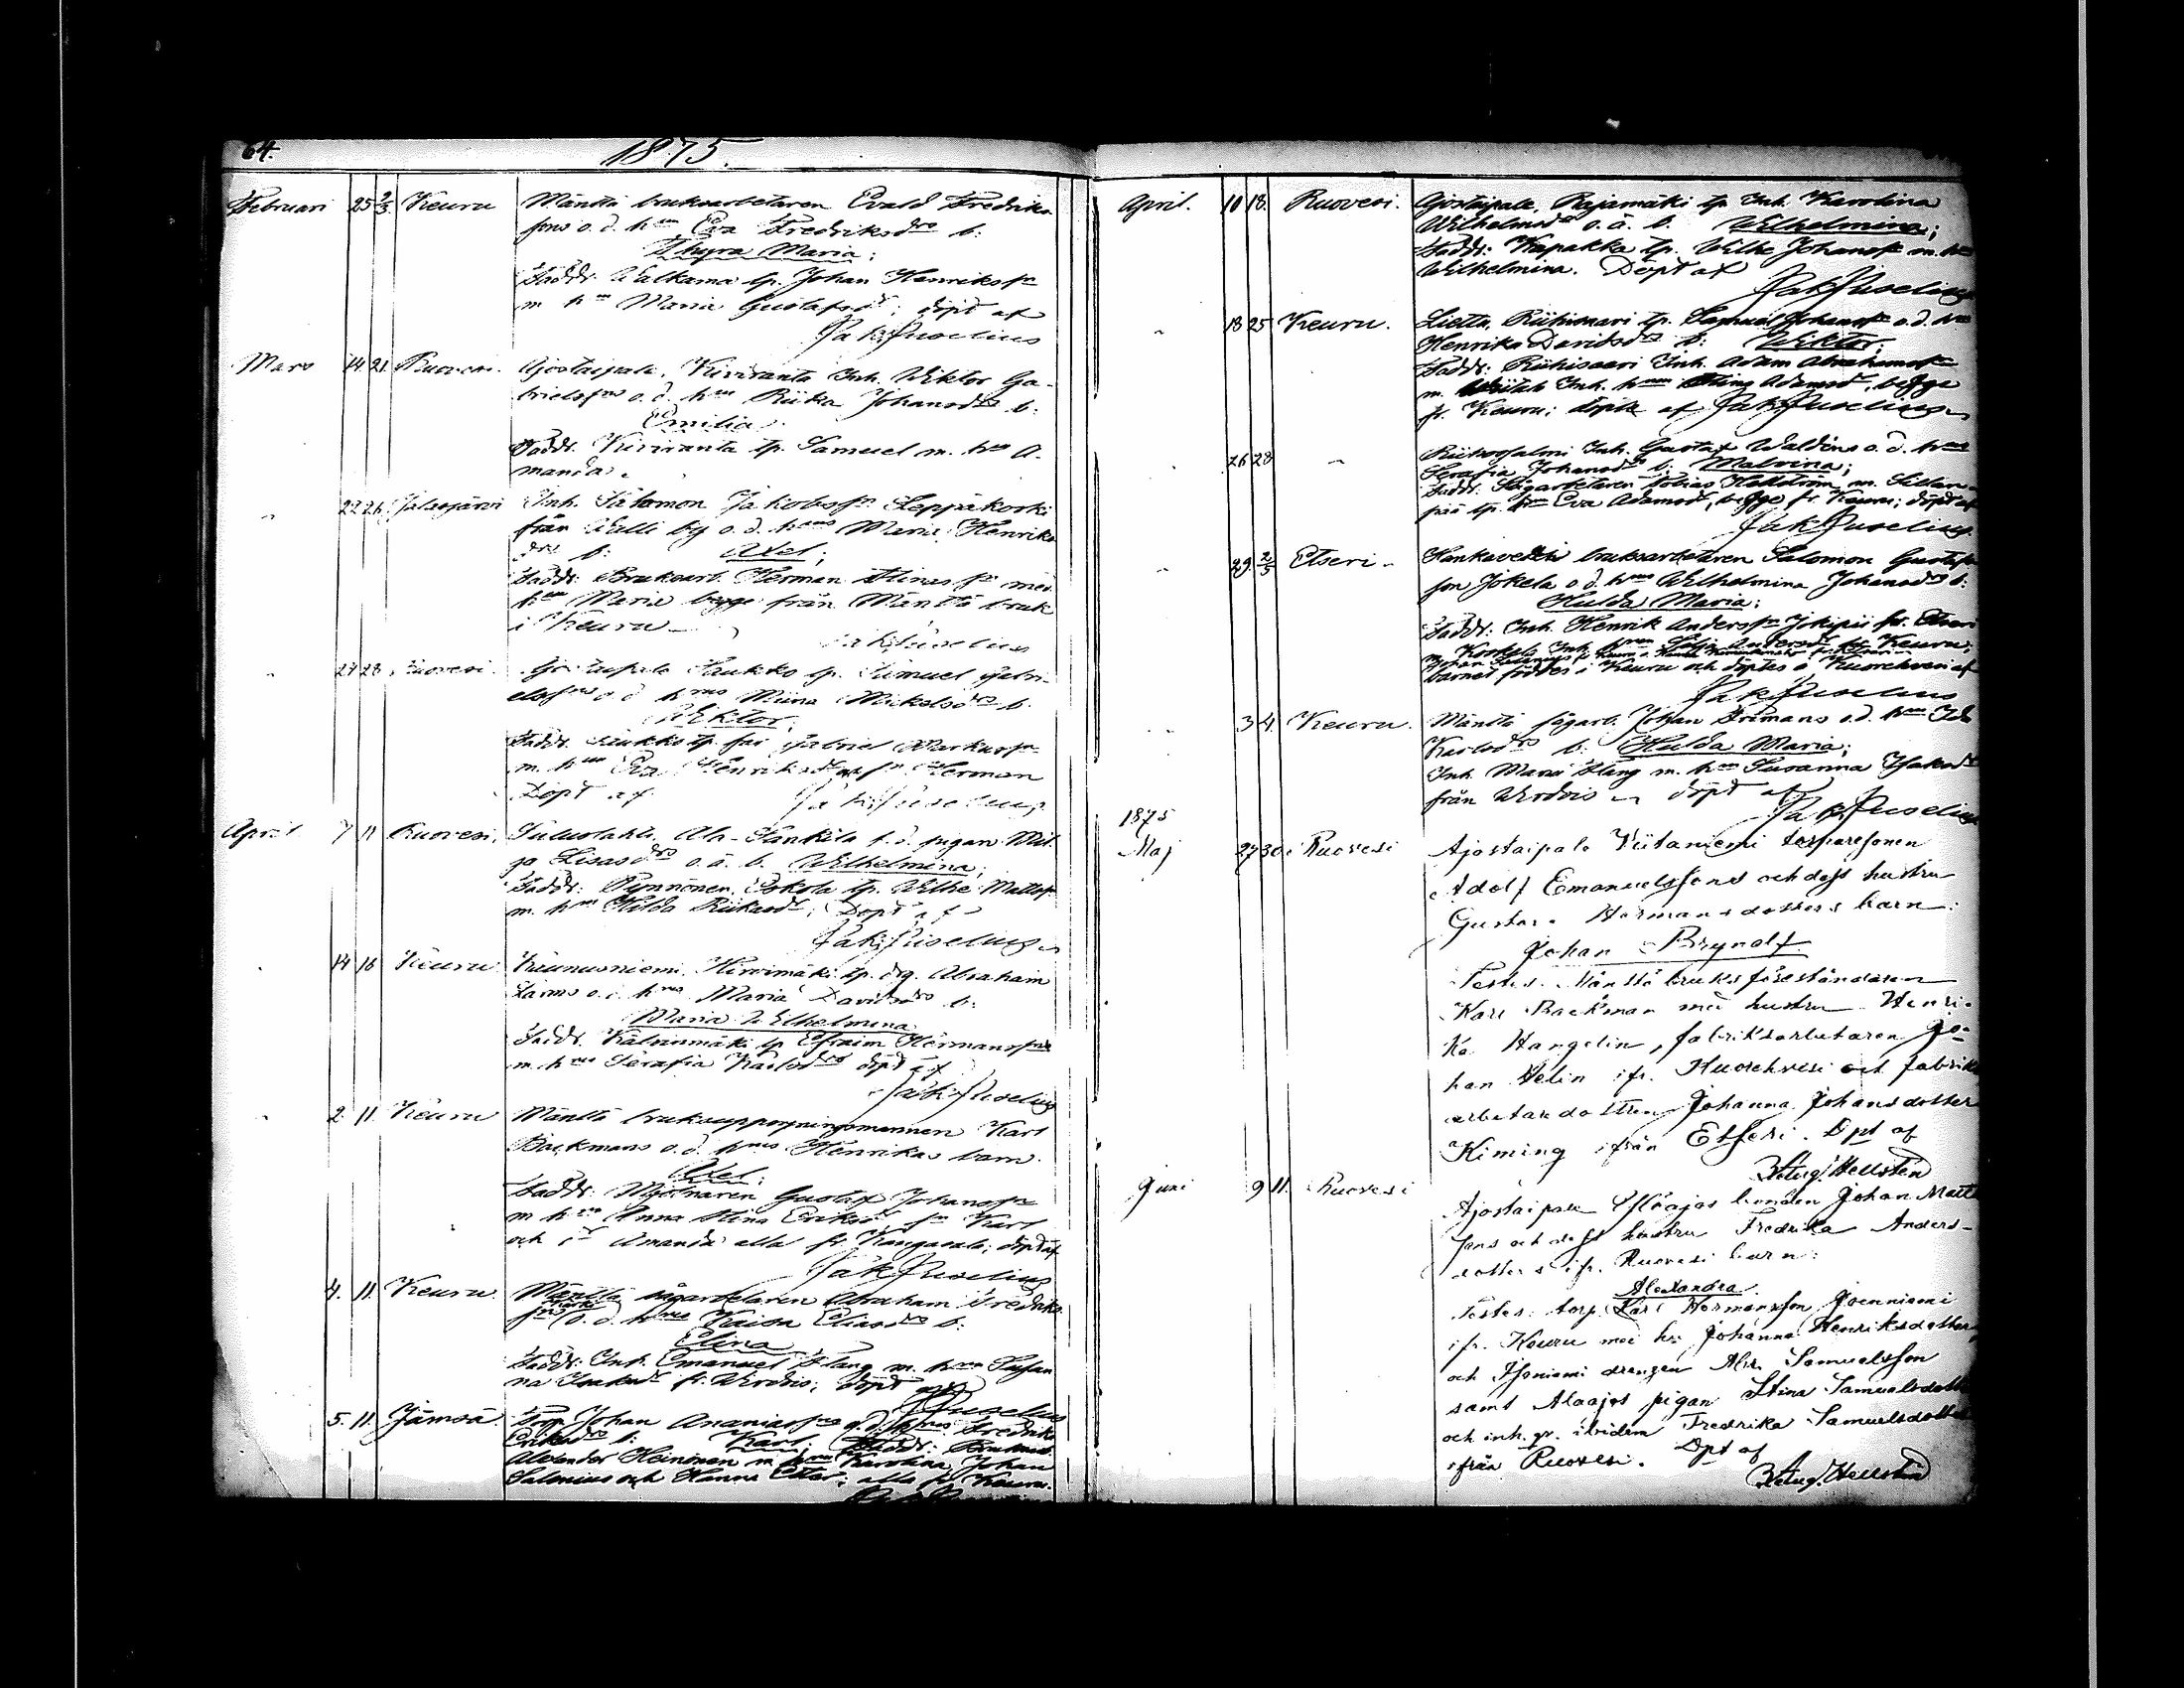 64.
1875.
Februari 25 2/3 Keuru Mänttä bruksarbetaren Evald Fredriks
sons o. d. hus Eva Fredriksdrs b:
Thyra Maria;
Faddr: Walkama tp. Johan Henrikssn
m hu Maria Gustafsdr; döpt af
Jak. Juselius
Mars 14 21 Ruovesi. Ajostaipale, Kiviranta Inh. Wiktor Ga-
brielsons o. d. hus Riika Johansdrs b:
Emilia.
Faddr: Kiviranta tp. Samuel m. hu A-
manda.
" 22 26 Jalasjärvi Inh. Salomon Jakobssn Leppäkoski
från Walli by o. d. hus Maria Henriks
drs b: Axel;
Faddr: Bruksarb. Herman Stinas sn med
hu Maria begge från Mänttä bruk
i Keuru
Jak. Juselius
" 27 28 Ruovesi. Ajostaipale Saukko tp. Samuel Gabri-
elssons o d hus Miina Mickelsdrs b.
Wiktor.
Faddr. Saukko tp. far Gabriel Markussn
m. hu Eva Henriksdr o sn Herman
Döpt af Jak. Juselius
April 7 11 Ruovesi,
Wilhelmina;
Faddr: Pynnönen, Sokola tp. Wilhe Mattssn
m. hu Hilda Rikardr; Döpt af
Jak. Juselius
14 16 Keuru Hirvimäki tp. drg. Abraham
o. d. hus Maria Davidsdrs b:
Maria Wilhelmina
Faddr. Kalvinmäki tp Efraim Hermanssns
m. hus Serafia Karlsdrs döpt af
Jak. Juselius
" 2. 11. Keuru Mänttä bruksuppsyningsmannen Karl
Backmans o. d. hus Henrikas barn.
Axel;
Faddr: Mjölnaren Gustaf Johanssn
m hu Anna Stina Eriksdr, sn Karl
och dr Amanda alla fr. Kangasala; döpt af
Jak. Juselius
4. 11. Keuru. Mänttä sågarbetaren Abraham Fredriks
sns o. d. hus Kaisa Eliasdrs b:
Elina
Faddr: Inh. Emanuel Stang m. hu Susan
na Isaksdr fr. Virdois; döpt af
Juselius
5. 11. Jämsä. Torp. Johan Ananiassns o. d. hus Fredrika
Eriksdrs b: Karl; Faddr: Bruksarb.
Alexander Heinonen m hu Karolina, Johan
Salmius och Hanna alla fr Keuru.
April. 10 18. Ruovesi. Ajostaipale, Rajamäki tp Inh. Karolina
Wilhelmsdrs o. ä. b. Wilhelmina;
Faddr: Kapakka tp. Wilhe Johanssn m. hu
Wilhelmina. Döpt af
Jak. Juselius
" 18 25 Keuru. Lietta, Riihisaari tp. Samuel Johanssns o. d. hus
Henrika Davidsdrs b: Wiktor;
Faddr: Riihisaari Inh. Adam Abrahamssn
m. Inh. hu Stina Adamsdr, begge
fr. Keuru; döpte af Jak. Juselius
26 28 " Inh. Gustaf Waldens o. d. hus
Serafia Johansdrs b: Malvina;
Faddr: Sågarbetaren Tobias Hallström m.
tp. hu Eva Adamsdr, begge fr Keuru; döpt af
Jak. Juselius.
" 29. 2/5 Etseri. Hankavesi bruksarbetaren Salomon Gustafs
son Jokela o. d. hus Wilhelmina Johansdrs b:
Hulda Maria;
Faddr: Inh. Henrik Anderssn Jokipii fr. Etseri
m. Koskela Inh. hu Andersdr fr. Keuru;
barnet föddes i Keuru och döptes i Kuorehvesi af
Jak. Juselius
3 4. Keuru. Mänttä sågarb. Johan o. d. hus Ida
Karlsdrs b: Hulda Maria;
Inh. Manu Stang m. hu Susanna Isaksdr
från Virdois döpt af
Jak. Juselius
1875
Maj 27 30 Ruovesi Ajostaipale Riitaniemi torparesonen
Adolf Emanuelssons och dess hustru
Gustava Hermansdotters barn:
Johan Brynolf
Testes. Mänttä bruks föreståndaren
Karl Backman med hustru Henri-
ka Hangelin, fabriksarbetaren Jo-
han Helin ifr. Kuorehvesi och fabriks
arbetaredottren Johanna Johansdotter
Kiming ifrån Etseri. Dpt af
Aug. Hellstén
Juni 9 11. Ruovesi Ajostaipale Yliajos bonden Johan Matts
sons och dess hustru Fredrika Anders-
dotters ifr. Ruovesi barn:
Alexandra.
Testes: torp. Karl Hermansson Joenniemi
ifr. Keuru med hu Johanna Henriksdotter,
och Isoniemi drengen Alex. Samuelsson
samt Alaajos pigan Stina Samuelsdotter
och inh. gr. ibidem Fredrika Samuelsdotter
ifrån Ruovesi. Dpt af
Aug. Hellstén